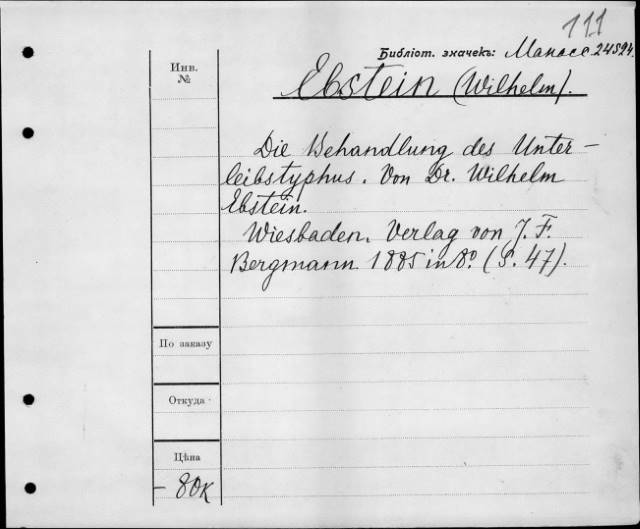 111
Библіот. значекъ: Манасс. 24594.
Инв.
№
Ebstein (Wilhelm).
Die Behandlung des Unter-
leibstyphus. Von Dr. Wilhelm
Ebstein.
Wiesbaden. Verlag von J. F.
Bergmann 1885 in 8º. (S. 47).
По заказу
Откуда
Цѣна
— 80к